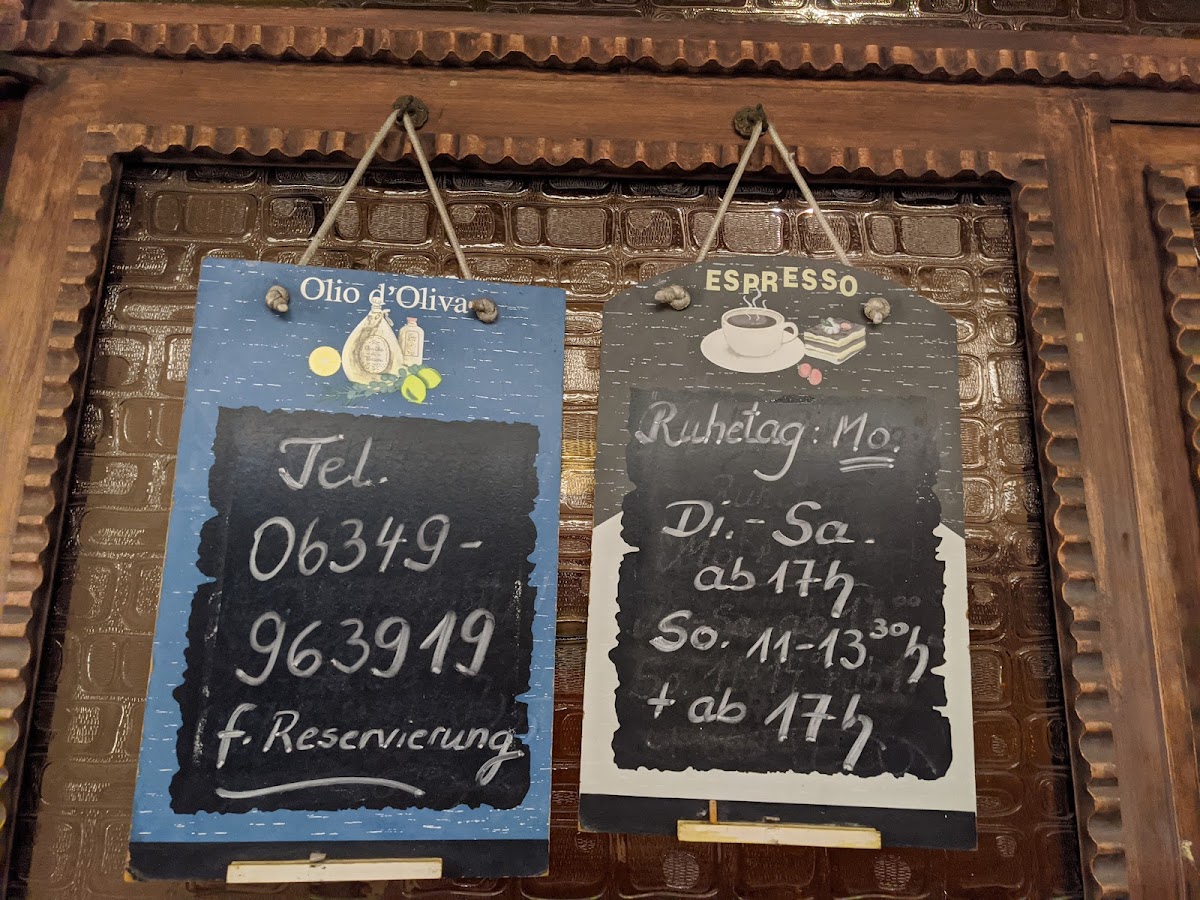 Olio d'Oliva
Tel.
06349-
963919
f. Reservierung
ESPRESSO
Ruhetag: Mo.
Di.-Sa.
ab 17h
So. 11-13³⁰h
+ ab 17h